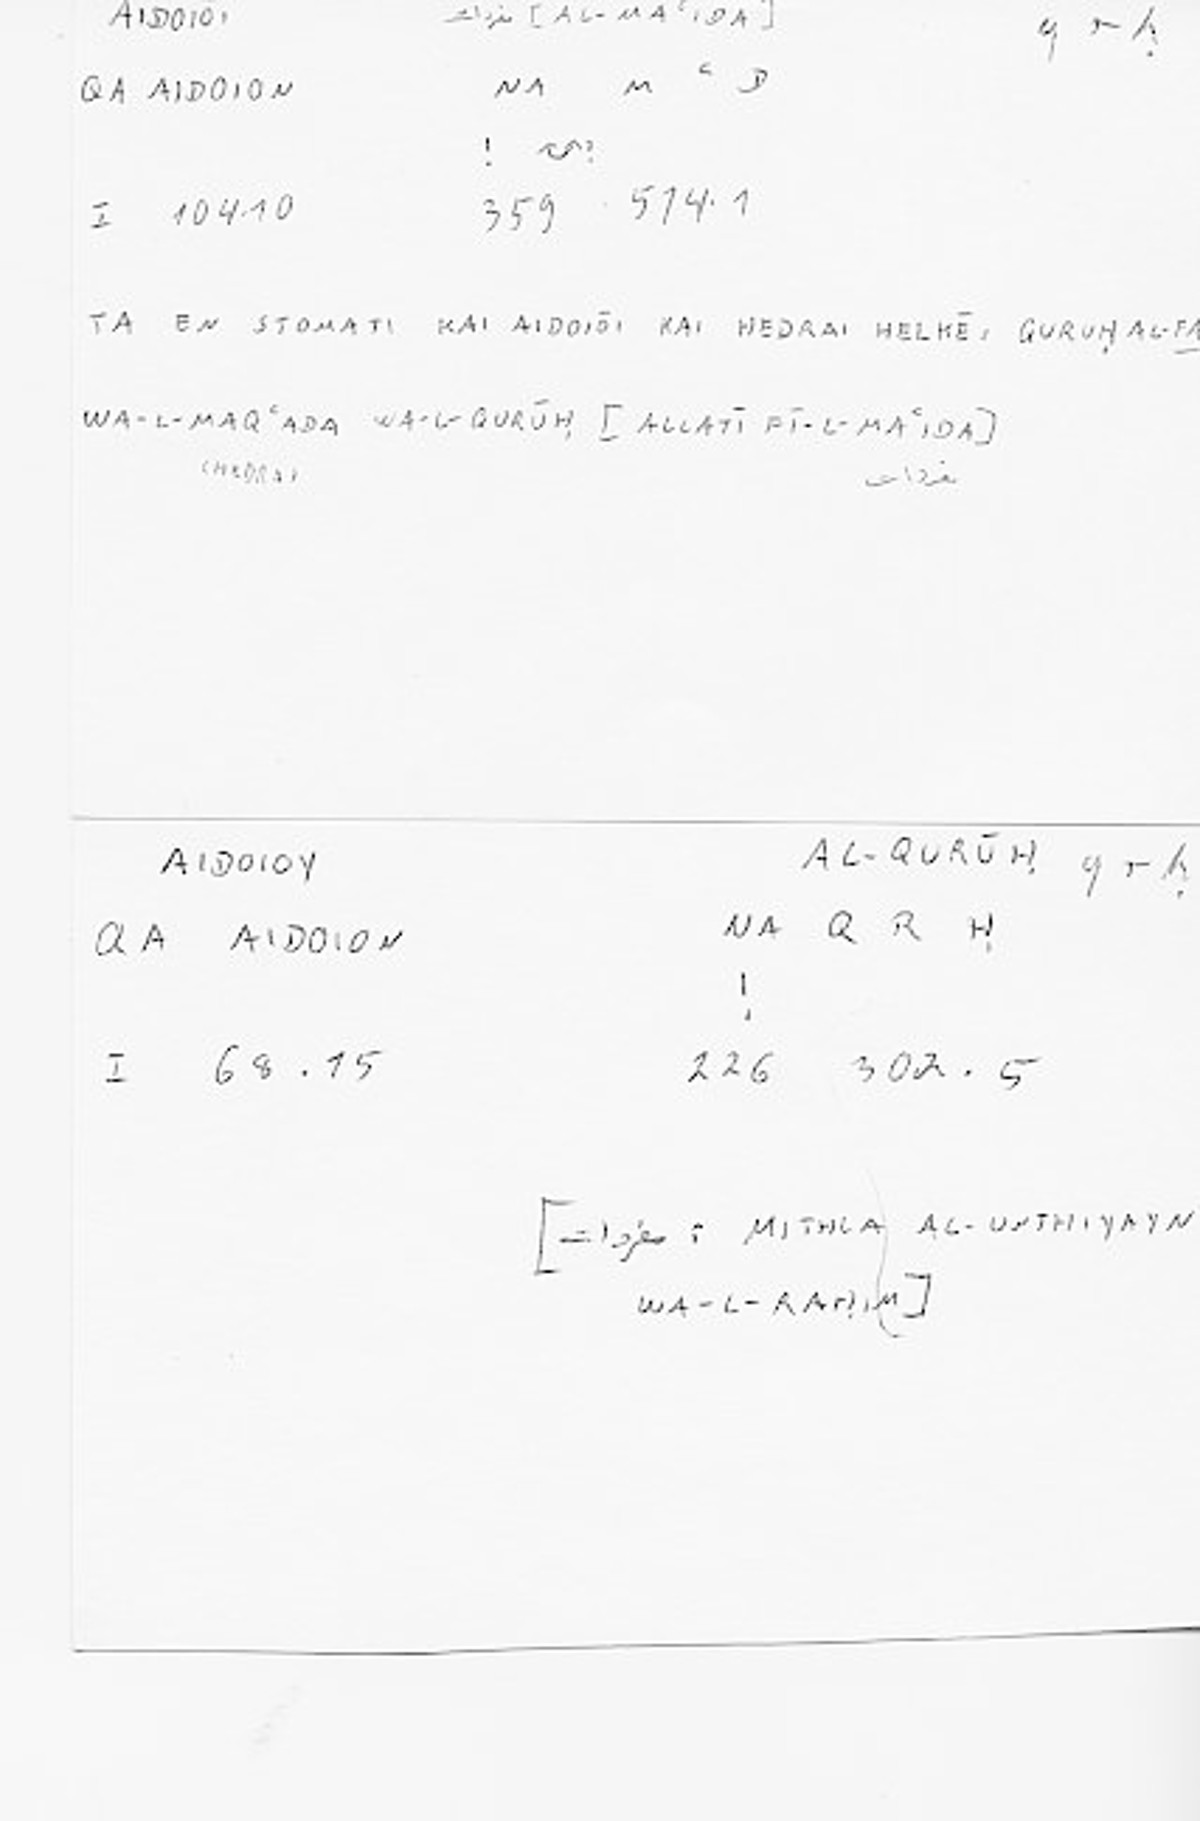 AIDOIŌI مفردات [AL-MAʿIDA] q r ḥ
QA AIDOION NA M ʿ D
!
I 104.10 359 514.1
TA EN STOMATI KAI AIDOIŌI KAI HEDRAI HELKĒ: QURUḤ AL-FA
WA-L-MAQʿADA WA-L-QURŪḤ [ALLATĪ FĪ-L-MAʿIDA]
(HEDRAI مفردات
AIDOIOY AL-QURŪḤ q r ḥ
QA AIDOION NA Q R Ḥ
!
I 68.15 226 302.5
[مفردات : MITHLA AL-UNTHIYAYN
WA-L-RAḤIM]